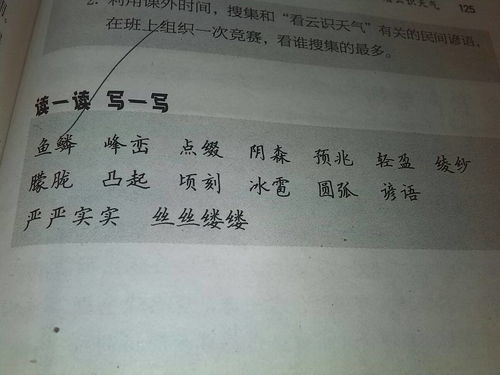 看云识天气 125
2. 利用课外时间，搜集和“看云识天气”有关的民间谚语，
在班上组织一次竞赛，看谁搜集的最多。
读一读 写一写
鱼鳞 峰峦 点缀 阴森 预兆 轻盈 绫纱
朦胧 凸起 顷刻 冰雹 圆弧 谚语
严严实实 丝丝缕缕